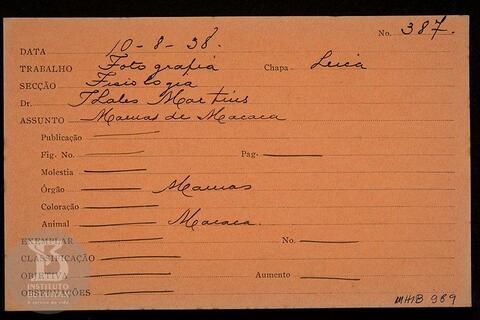 No. 387.
DATA 10-8-38.
TRABALHO Fotografia Chapa Leica
SECÇÃO Fisiologia
Dr. Thales Martins
ASSUNTO Mamas de Macaca
Publicação
Fig. No. Pag.
Molestia
Órgão Mamas
Coloração
Animal Macaca.
EXEMPLAR No.
CLASSIFICAÇÃO
OBJETIVA Aumento
OBSERVAÇÕES
INSTITUTO BUTANTAN
A serviço da vida
MHIB 969